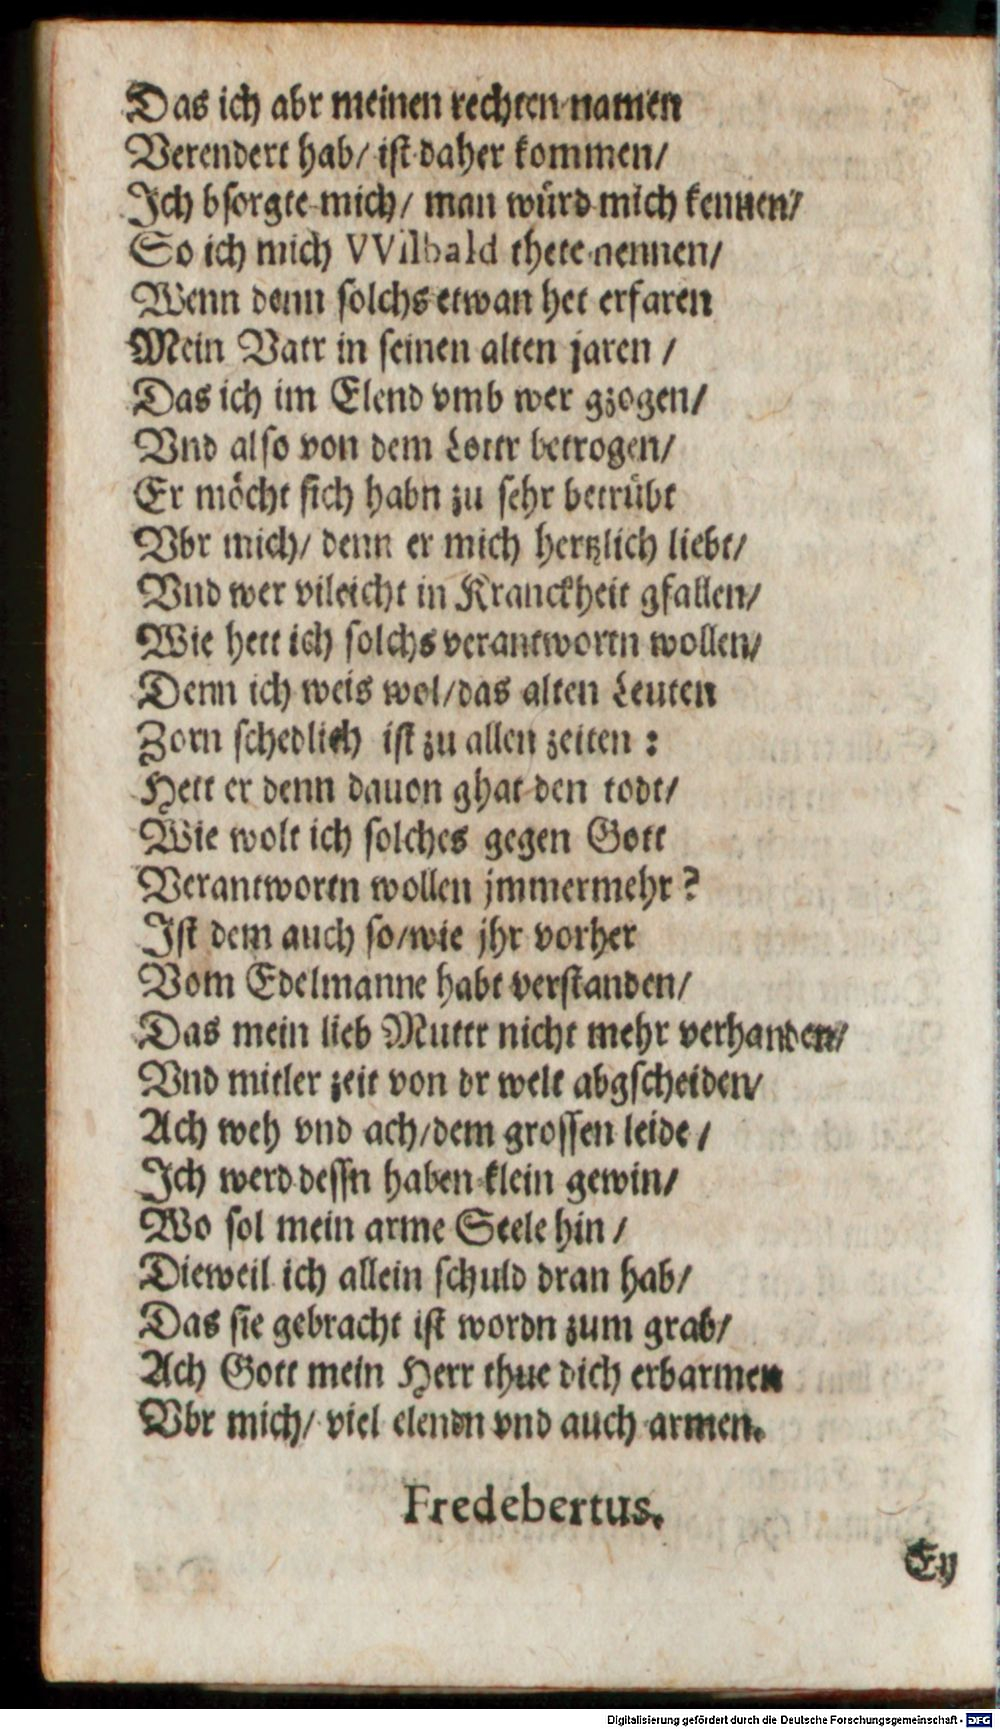 Das ich abr meinen rechten namen
Verendert hab/ ist daher kommen/
Ich bsorgte mich/ man würd mich kennen/
So ich mich VVilbald thete nennen/
Wenn denn solchs etwan het erfaren
Mein Vatr in seinen alten jaren /
Das ich im Elend vmb wer gzogen/
Vnd also von dem Lottr betrogen/
Er möcht sich habn zu sehr betrübt
Vbr mich/ denn er mich hertzlich liebt/
Vnd wer vileicht in Kranckheit gfallen/
Wie hett ich solchs verantwortn wollen/
Denn ich weis wol/das alten Leuten
Zorn schedlich ist zu allen zeiten :
Hett er denn dauon ghat den todt/
Wie wolt ich solches gegen Gott
Verantwortn wollen jmmermehr ?
Ist dem auch so/wie jhr vorher
Vom Edelmanne habt verstanden/
Das mein lieb Muttr nicht mehr verhanden/
Vnd mitler zeit von dr welt abgscheiden/
Ach weh vnd ach/dem grossen leide /
Ich werd dessn haben klein gewin/
Wo sol mein arme Seele hin /
Dieweil ich allein schuld dran hab/
Das sie gebracht ist wordn zum grab/
Ach Gott mein Herr thue dich erbarmen
Vbr mich/ viel elendn vnd auch armen.
Fredebertus.
Ey
Digitalisierung gefördert durch die Deutsche Forschungsgemeinschaft - DFG